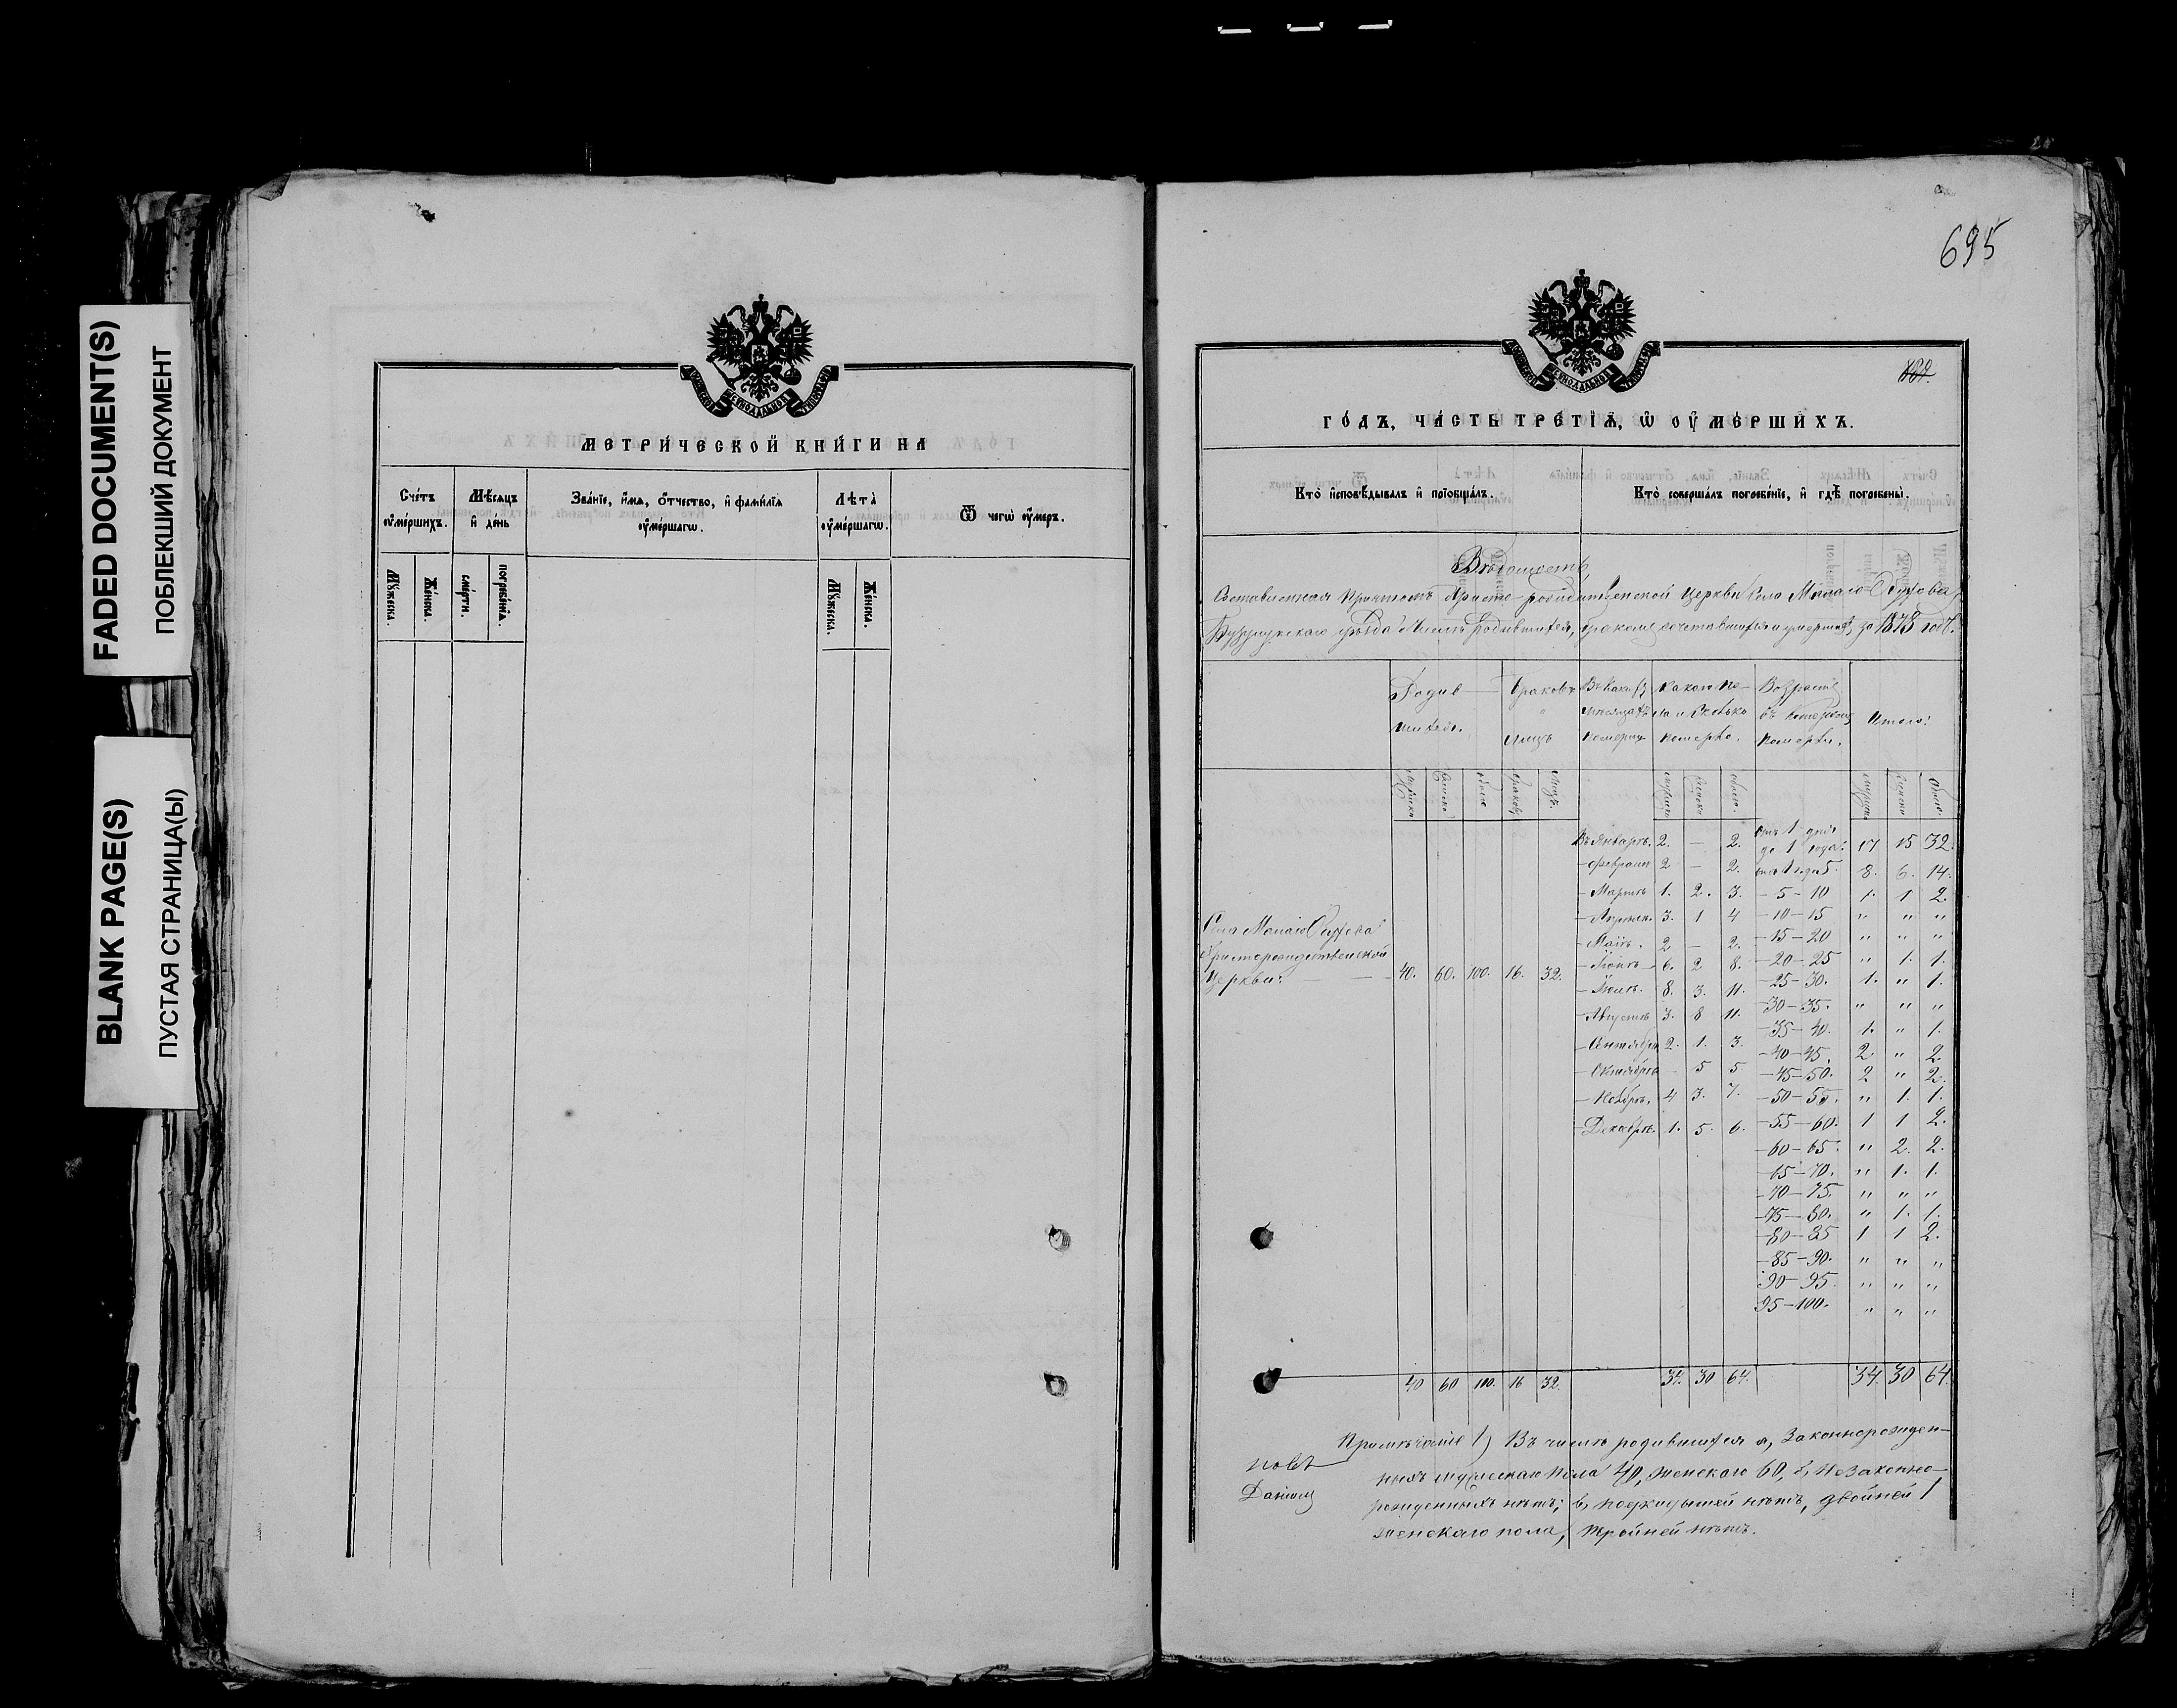 FADED DOCUMENT(S)
ПОБЛЕКШИЙ ДОКУМЕНТ
BLANK PAGE(S)
ПУСТАЯ СТРАНИЦА(Ы)
МЕТРИ́ЧЕСКОЙ КНИ́ГИ НА
Сче́тъ ᲂу҆ме́ршихъ.
Мѣ́сяцъ и҆ де́нь
Зва́нїе, и҆́мѧ, ѻ҆́тчество, и҆ фами́лїѧ ᲂу҆ме́ршагѡ.
Лѣта̀ ᲂу҆ме́ршагѡ.
Ѿ чегѡ̀ ᲂу҆́меръ.
Мꙋ́жеска.
Же́нска.
сме́рти.
погребе́нїѧ.
Мꙋ́жеска.
Же́нска.
695
ГО́ДЪ, ЧА́СТЬ ТРЕ́ТЇѦ, Ѡ҆ ОУ҆МЕ́РШИХЪ.
Кто̀ и҆сповѣ́дывалъ и҆ прїѡбща́лъ.
Кто̀ соверша́лъ погребе́нїе, и҆ гдѣ̀ погребены̀.
Вѣдомость
Составленная Причтомъ Христо-рождественской Церкви Села Малаго
Бузулукскаго уѣзда о числѣ родившихся, бракомъ сочетавшихся и умершихъ за 1878 годъ.
Родив-
шихся.
Браковъ
и лицъ
Въ какихъ
мѣсяцахъ
померли
какого по-
ла и сколько
померло.
Возрастъ
въ которомъ
померли.
Итого:
мужска
женска
обоего
браковъ
лицъ.
мужска
женска
обоего.
мужска
женска
обоего
Въ Январѣ. 2. — 2. отъ 1 дня до 1 года. 17 15 32.
— Февралѣ 2 — 2. отъ 1 года 5. 8. 6. 14.
— Мартѣ 1. 2. 3. — 5 — 10 1. 1 2.
— Апрѣлѣ. 3. 1 4 — 10 — 15 " " "
— Маѣ. 2 — 2. — 15 — 20 " " "
— Іюнѣ 6. 2 8. — 20 — 25 " 1. 1.
Церкви. 40. 60. 100. 16. 32.
— Іюлѣ. 8. 3. 11. — 25 — 30. 1. " 1.
— Августѣ 3. 8 11. — 30 — 35. " " "
— 35 — 40. 1. " 1.
— Сентябрѣ 2. 1. 3. — 40 — 45. 2 " 2
— Октябрѣ — 5 5 — 45 — 50. 2 " 2.
— Ноябрѣ. 4 3. 7. — 50 — 55. " 1. 1.
— Декабрѣ. 1. 5. 6. — 55 — 60. 1 1 2.
— 60 — 65. " 2. 2.
— 65 — 70. " 1. 1.
— 70 — 75. " " "
— 75 — 80. " 1. 1.
— 80 — 85 1 1 2.
— 85 — 90. " " "
90 — 95. " " "
95 — 100. " " "
40 60 100. 16 32. 34. 30 64. 34. 30 64.
Примѣчаніе 1) Въ числѣ родившихся а, Законнорожден-
ныхъ мужескаго пола 40, женскаго 60, б, Незаконно-
рожденныхъ нѣтъ; в, подкидышей нѣтъ, двойней 1
женскаго пола, тройней нѣтъ.